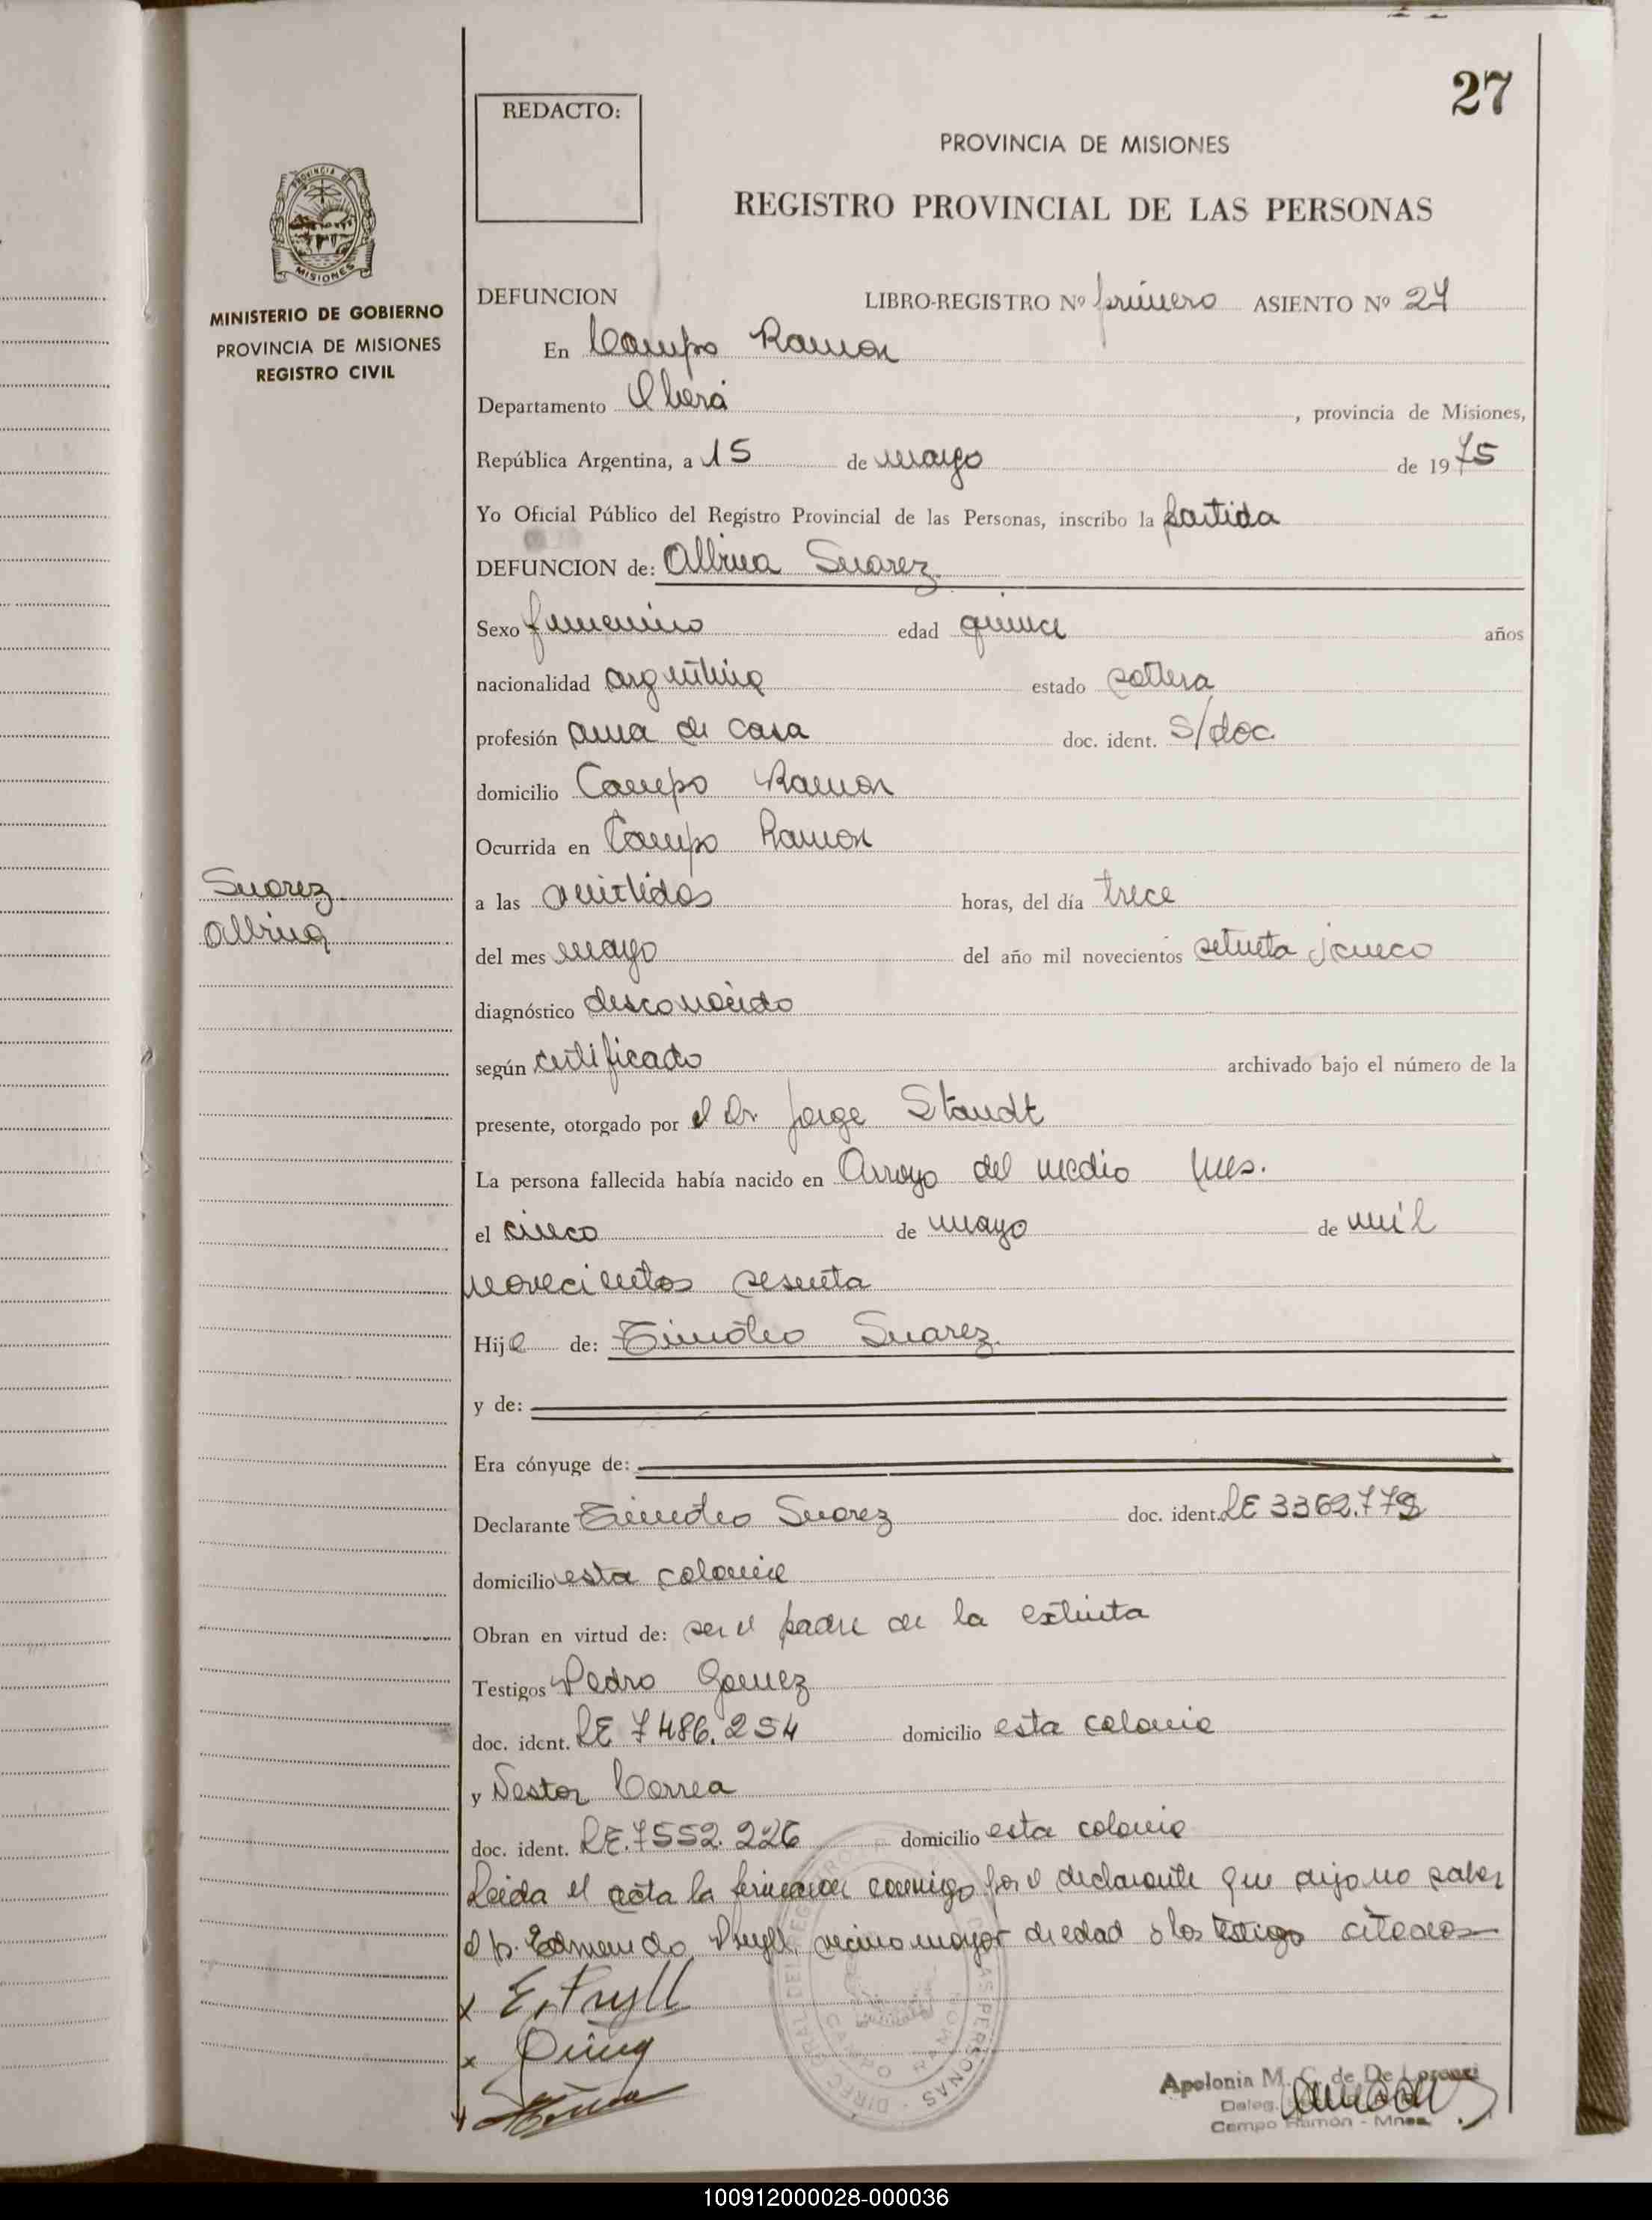 27
REDACTO:
PROVINCIA DE MISIONES
REGISTRO PROVINCIAL DE LAS PERSONAS
PROVINCIA DE
MISIONES
MINISTERIO DE GOBIERNO
PROVINCIA DE MISIONES
REGISTRO CIVIL
DEFUNCION LIBRO-REGISTRO Nº primero ASIENTO Nº 27
En Campo Ramon
Departamento Oberá, provincia de Misiones,
República Argentina, a 15 de mayo de 1975
Yo Oficial Público del Registro Provincial de las Personas, inscribo la partida
DEFUNCION de: Albina Suarez
Sexo femenino edad quince años
nacionalidad argentina estado soltera
profesión ama de casa doc. ident. S/doc.
domicilio Campo Ramon
Ocurrida en Campo Ramon
Suarez
Albina
a las veintidos horas, del día trece
del mes mayo del año mil novecientos setenta icinco
diagnóstico desconocido
según certificado archivado bajo el número de la
presente, otorgado por el Dr. Jorge Staudt
La persona fallecida había nacido en Arroyo del medio Mes.
el cinco de mayo de mil
novecientos sesenta
Hija de: Timoteo Suarez
y de:
Era cónyuge de:
Declarante Timoteo Suarez doc. ident. LE 3362.779
domicilio esta colonia
Obran en virtud de: ser el padre de la extinta
Testigos Pedro Gomez
doc. ident. LE 7486.254 domicilio esta colonia
y Nestor Correa
doc. ident. LE.7552.226 domicilio esta colonia
Leida el acta la firman conmigo por el declarante que dijo no saber
el Sr. Edmundo Pryll, vecino mayor de edad i los testigo citados
x E. Pryll
x
DIREC. GRAL. DEL REGISTRO DE LAS PERSONAS
CAMPO RAMON
Apolonia M. C. de De Lorenzi
Deleg.
Campo Ramón - Mnes.
100912000028-000036